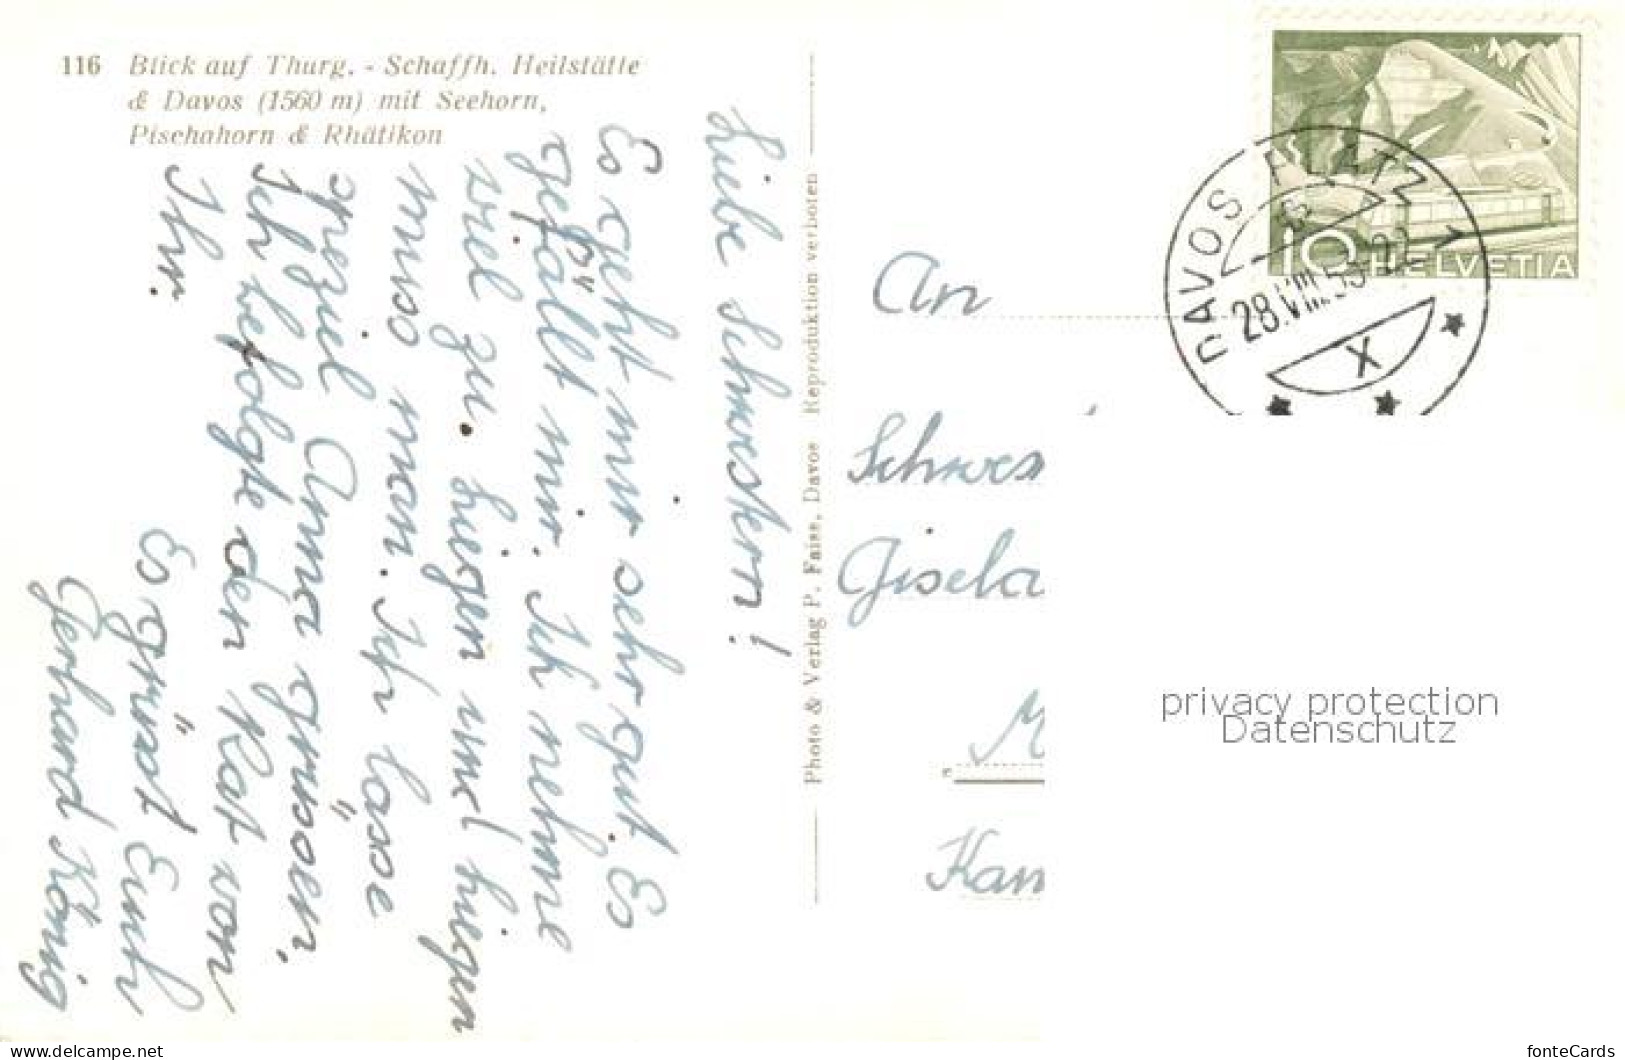 116 Blick auf Thurg. - Schaffh. Heilstätte
& Davos (1560 m) mit Seehorn,
Pischahorn & Rhätikon
Liebe Schwestern!
Es geht mir sehr gut. Es
gefällt mir. Ich nehme
viel zu. Liegen und liegen
muss man. Ich lasse
speziel Anna grüssen,
Ich befolgte den Rat von
Ihr.
Es grüsst Euch
Gerhard König
Photo & Verlag P. Faiss, Davos Reproduktion verboten
10 HELVETIA
DAVOS PLATZ
28.VIII.5
X
An
Schwes
Gisela
M
Kan
privacy protection
Datenschutz
delcampe.net
fonteCards